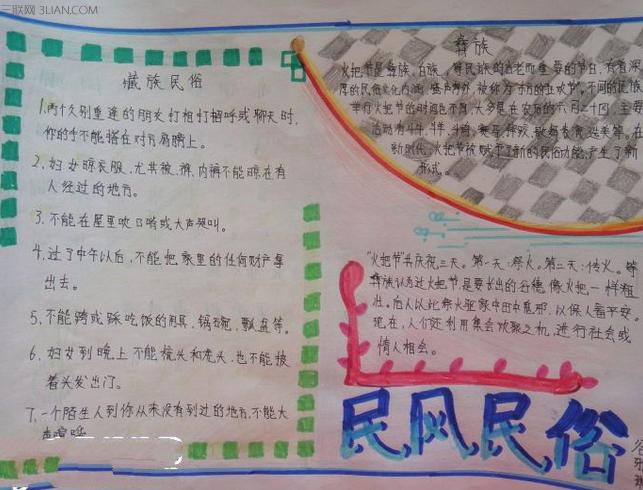 三联网 3LIAN.COM
藏族民俗
1.两个久别重逢的朋友打相打招呼或聊天时,
你的手不能搭在对方肩膀上。
2.妇女晾衣服,尤其被、裤、内裤不能晾在有
人经过的地方。
3.不能在屋里吹口哨或大声哭叫。
4.过了中午以后,不能把家里的任何财产拿
出去。
5.不能跨或踩吃饭的用具、锅碗、瓢盆等。
6.妇女到晚上不能梳头和洗头,也不能披
着头发出门。
7.一个陌生人到你从来没有到过的地方,不能大
声喧哗
彝族
火把节是彝族、白族、等民族的古老而重要的节日,有着深
厚的民俗文化内涵,蜚声海外,被称为"东方的狂欢节"。不同的民族
举行火把节的时间也不同,大多是在农历的六月二十四,主要
活动有斗牛、斗羊、斗鸡、赛马、摔跤、歌舞表演、选美等。在
新时代,火把节被赋予了新的民俗功能,产生了新
形式。
"火把节"共庆祝三天。第一天:祭火。第二天:传火。等
彝族认为过火把节是要长出的谷穗像火把一样粗
壮。后人以此祭火驱家中田中鬼邪,以保人畜平安。
现在,人们还利用集会欢聚之机,进行社会或
情人相会。
民风民俗